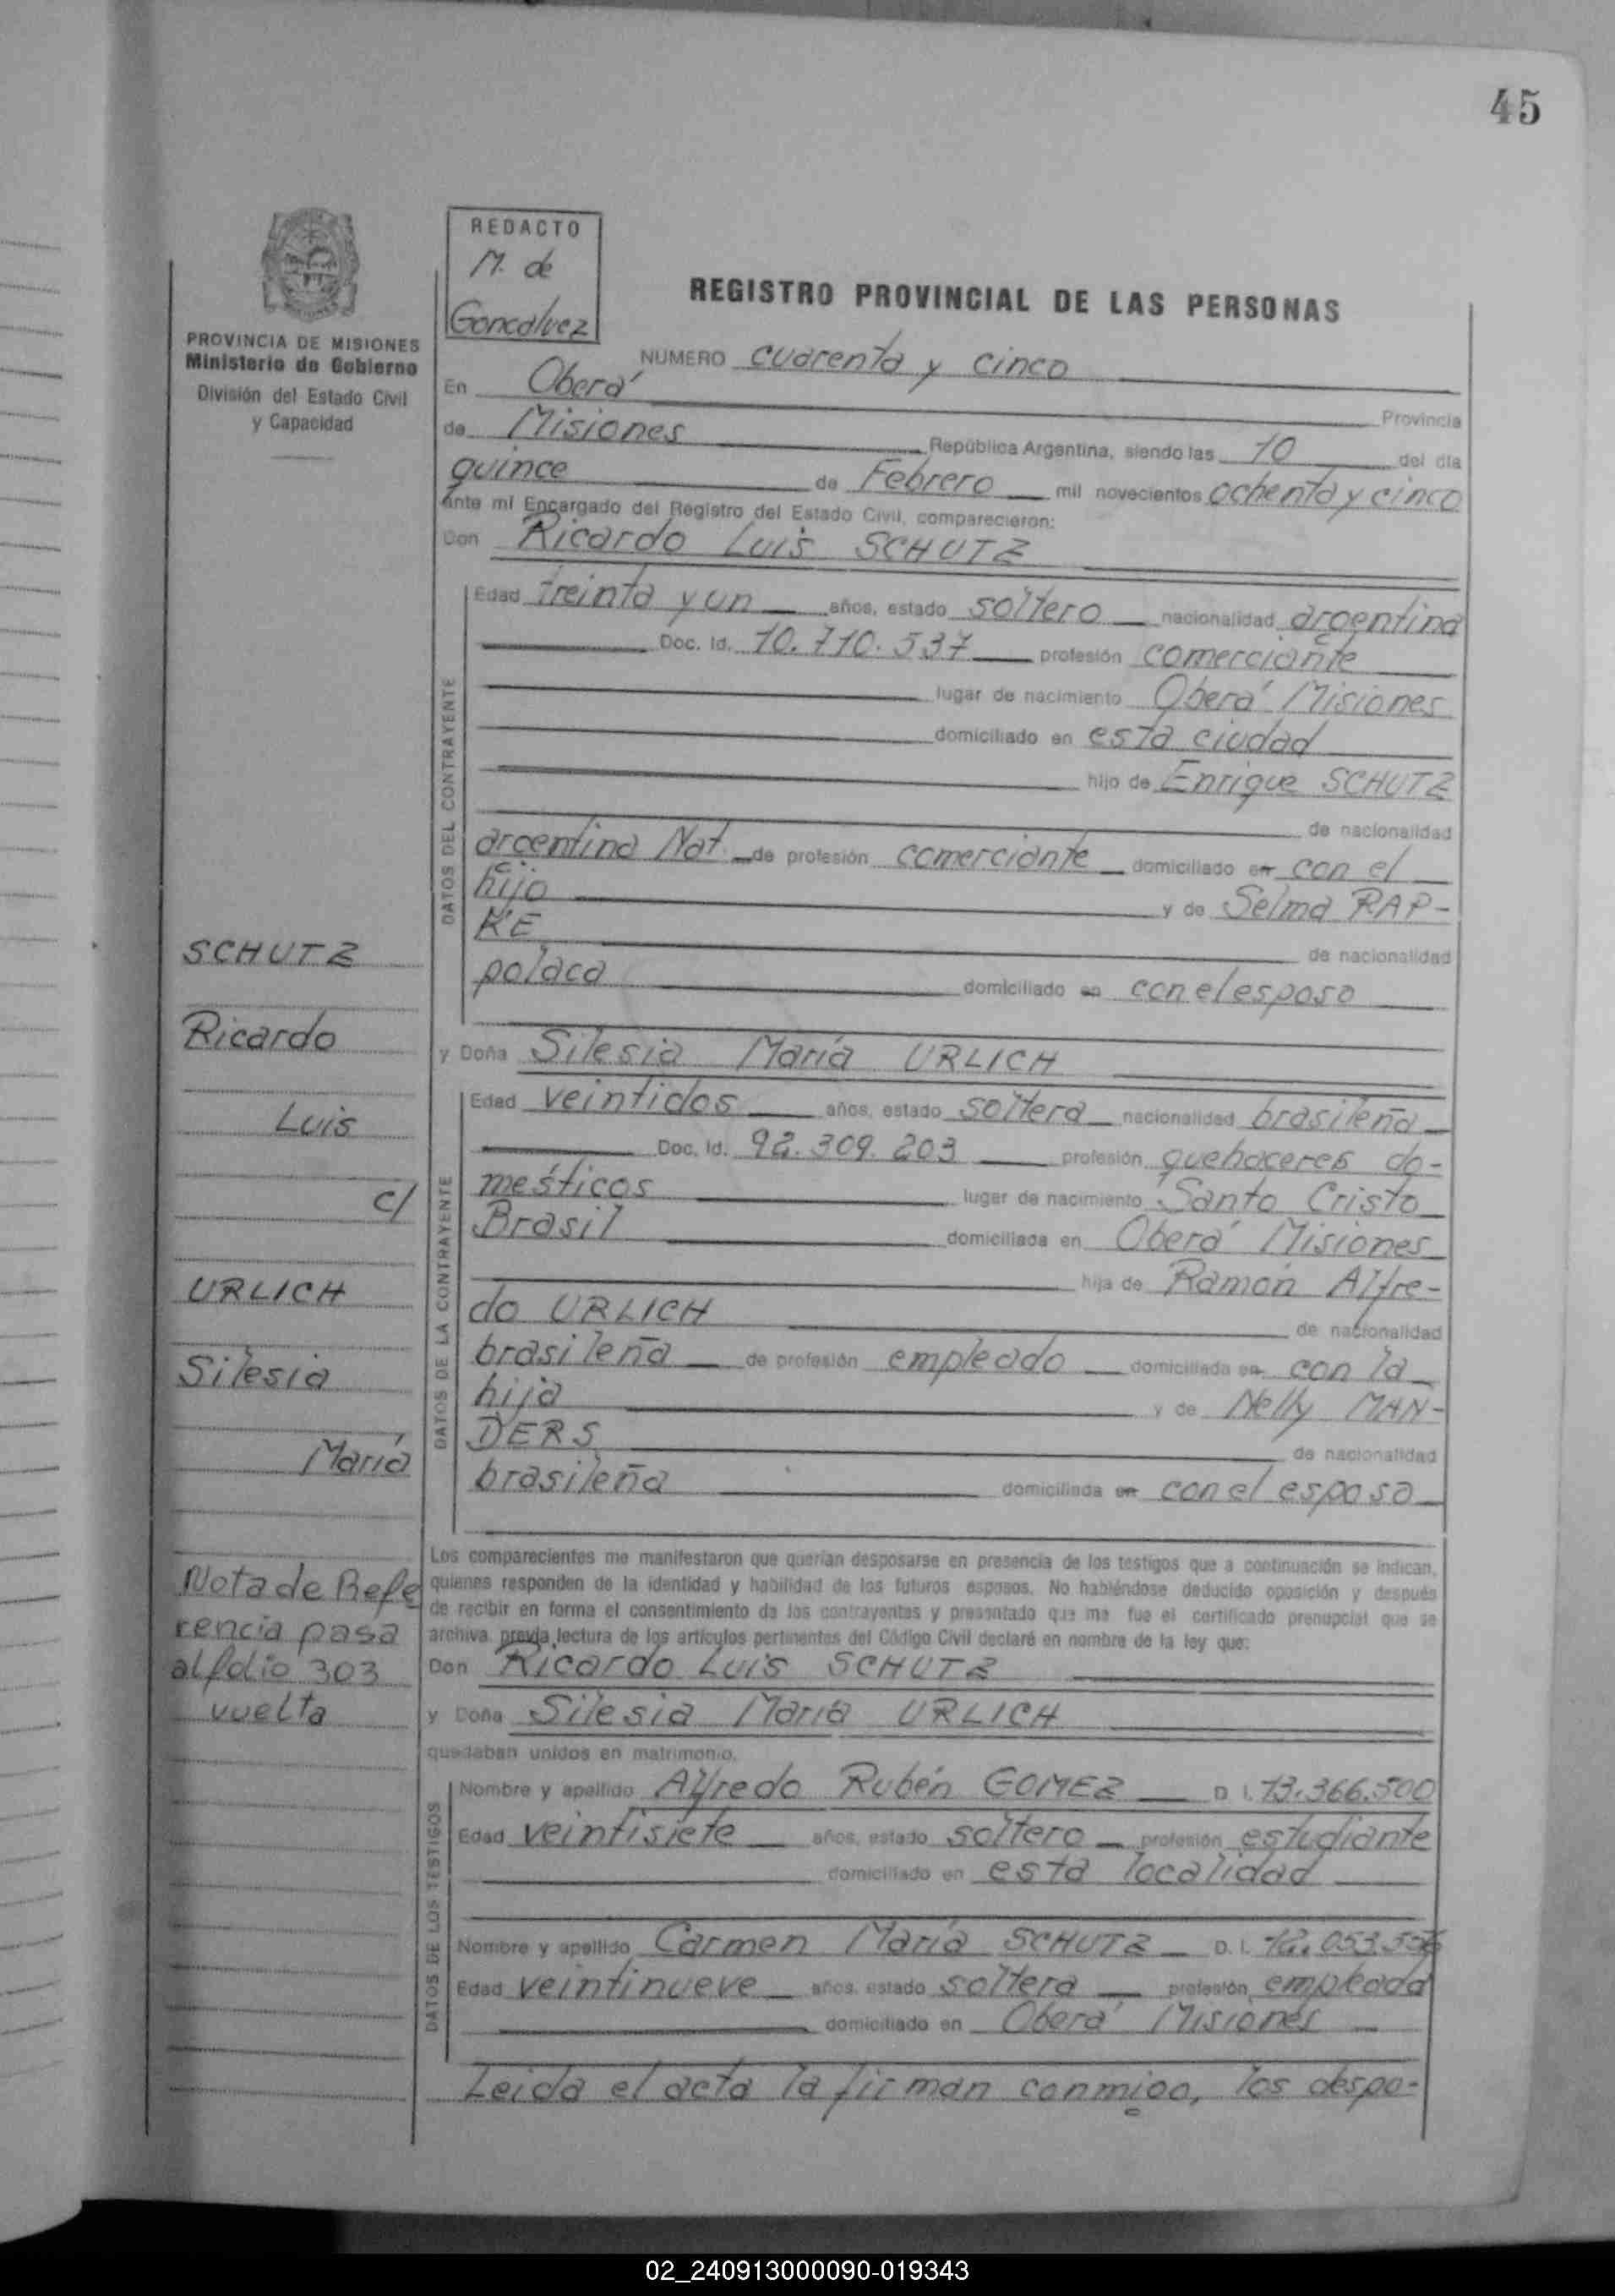 45
REDACTO
M. de
Goncalvez
REGISTRO PROVINCIAL DE LAS PERSONAS
PROVINCIA DE MISIONES
Ministerio de Gobierno
División del Estado Civil
y Capacidad
NUMERO cuarenta y cinco
En Oberá Provincia
de Misiones República Argentina, siendo las 10 del día
quince de Febrero mil novecientos ochenta y cinco
Ante mí Encargado del Registro del Estado Civil, comparecieron:
Don Ricardo Luis SCHUTZ
DATOS DEL CONTRAYENTE
Edad treinta y un años, estado soltero nacionalidad argentina
Doc. Id. 10.710.537 profesión comerciante
lugar de nacimiento Oberá Misiones
domiciliado en esta ciudad
hijo de Enrique SCHUTZ
de nacionalidad
argentina Nat. de profesión comerciante domiciliado en con el
hijo y de Selma RAP-
KE de nacionalidad
polaca domiciliado en con el esposo
y Doña Silesia María URLICH
DATOS DE LA CONTRAYENTE
Edad veintidos años, estado soltera nacionalidad brasileña
Doc. Id. 92.309.203 profesión quehaceres do-
mésticos lugar de nacimiento Santo Cristo
Brasil domiciliada en Oberá Misiones
hija de Ramón Alfre-
do URLICH de nacionalidad
brasileña de profesión empleado domiciliada en con la
hija y de Nelly MAN-
DERS de nacionalidad
brasileña domiciliada en con el esposo
SCHUTZ
Ricardo
Luis
c/
URLICH
Silesia
María
Nota de Refe
rencia pasa
al folio 303
vuelta
Los comparecientes me manifestaron que querían desposarse en presencia de los testigos que a continuación se indican,
quienes responden de la identidad y habilidad de los futuros esposos. No habiéndose deducido oposición y después
de recibir en forma el consentimiento de los contrayentes y presentado que me fue el certificado prenupcial que se
archiva previa lectura de los artículos pertinentes del Código Civil declaré en nombre de la ley que:
Don Ricardo Luis SCHUTZ
y Doña Silesia María URLICH
quedaban unidos en matrimonio.
DATOS DE LOS TESTIGOS
Nombre y apellido Alfredo Rubén GOMEZ D. I. 13.366.500
Edad veintisiete años, estado soltero profesión estudiante
domiciliado en esta localidad
Nombre y apellido Carmen María SCHUTZ D. I.
Edad veintinueve años, estado soltera profesión empleada
domiciliado en Oberá Misiones
Leida el acta la firman conmigo, los despo-
02_240913000090-019343